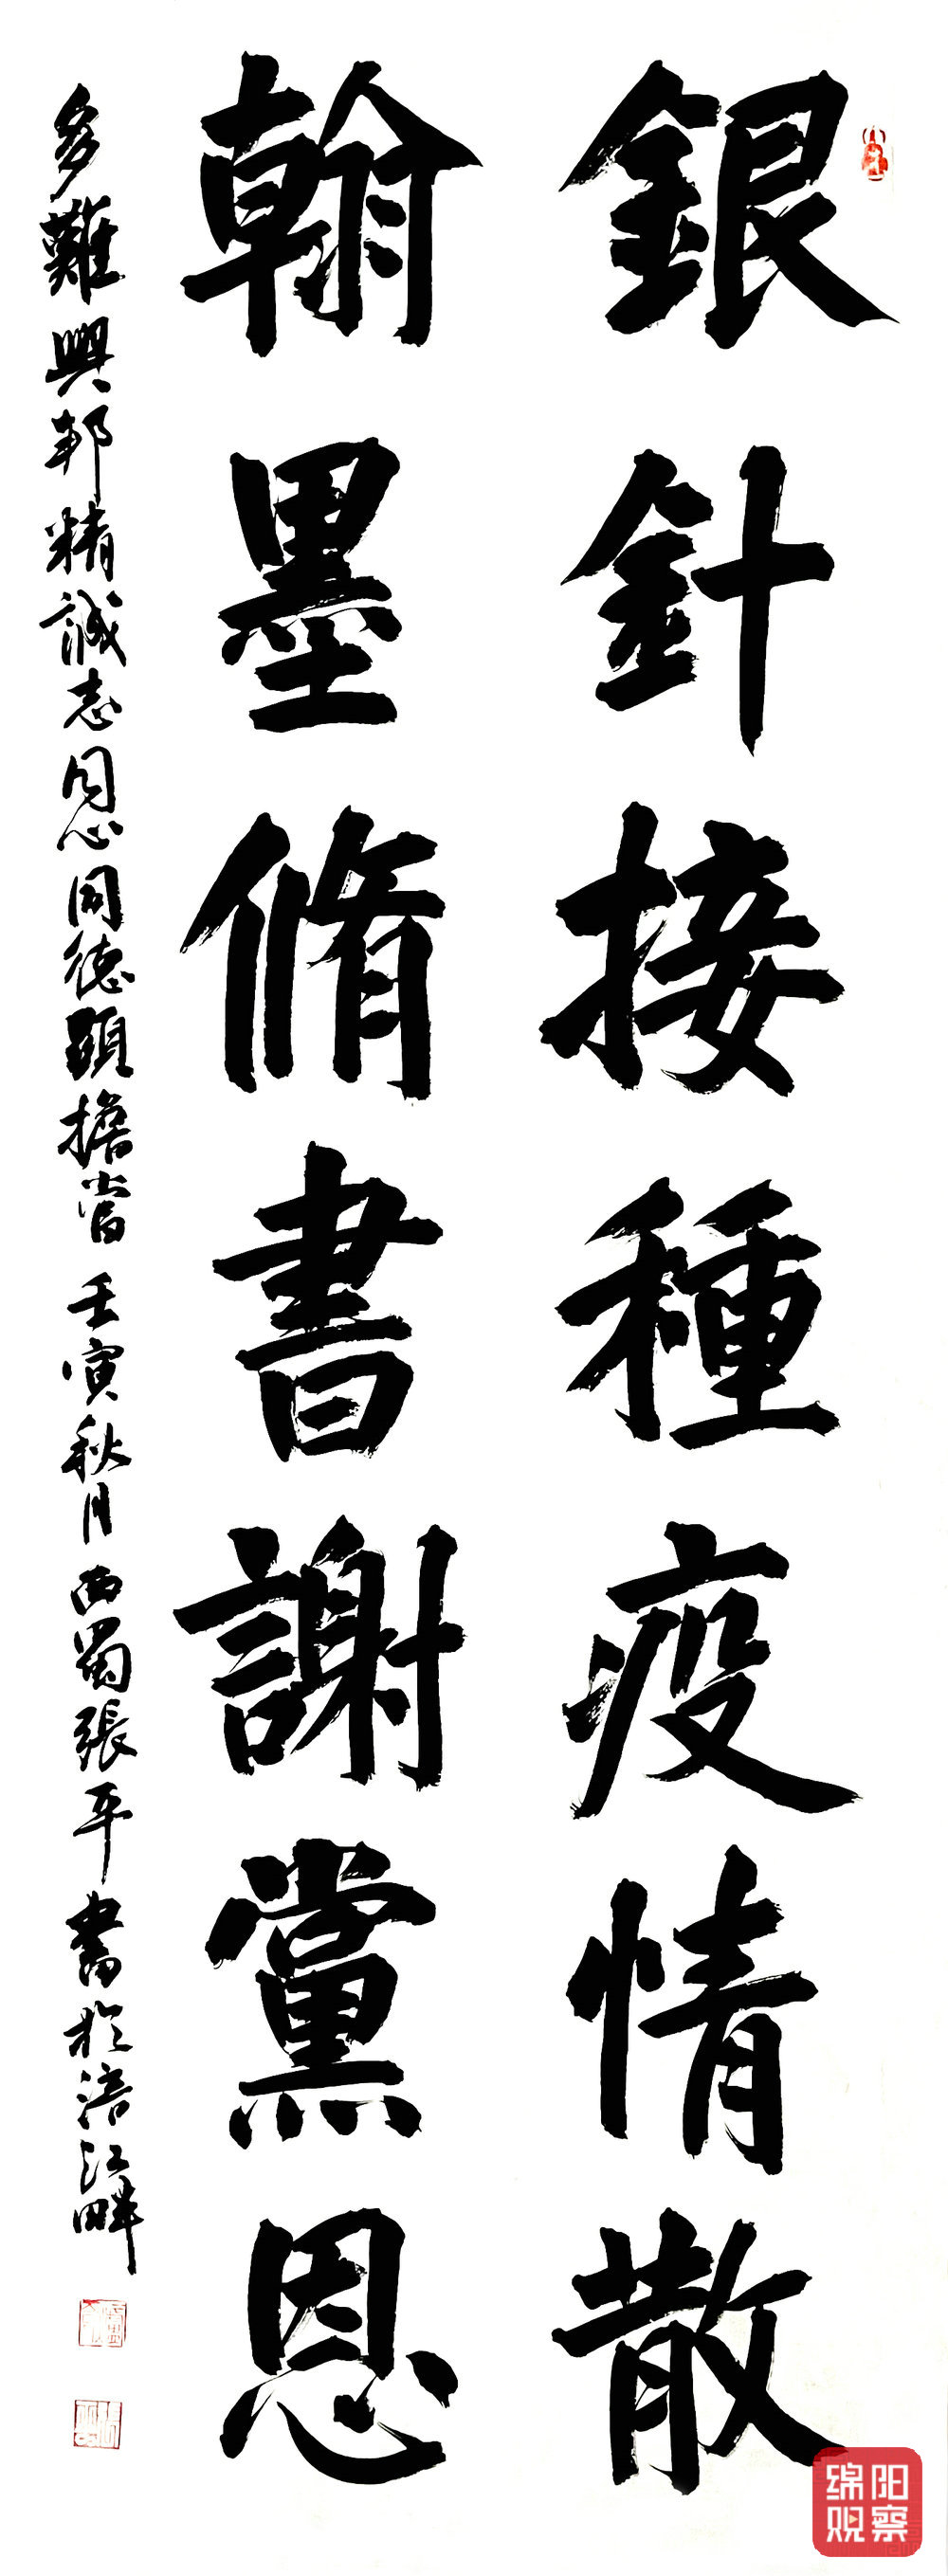 銀針接種疫情散
翰墨脩書謝黨恩
多難興邦精誠志同心同德顯擔當 壬寅秋月 西蜀張平書於涪江畔
绵阳
观察